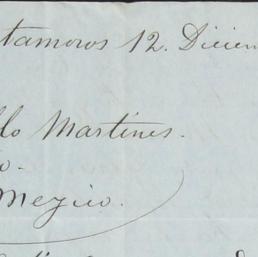 tamoros 12. Diciem
llo Martines.
o.
Megico.